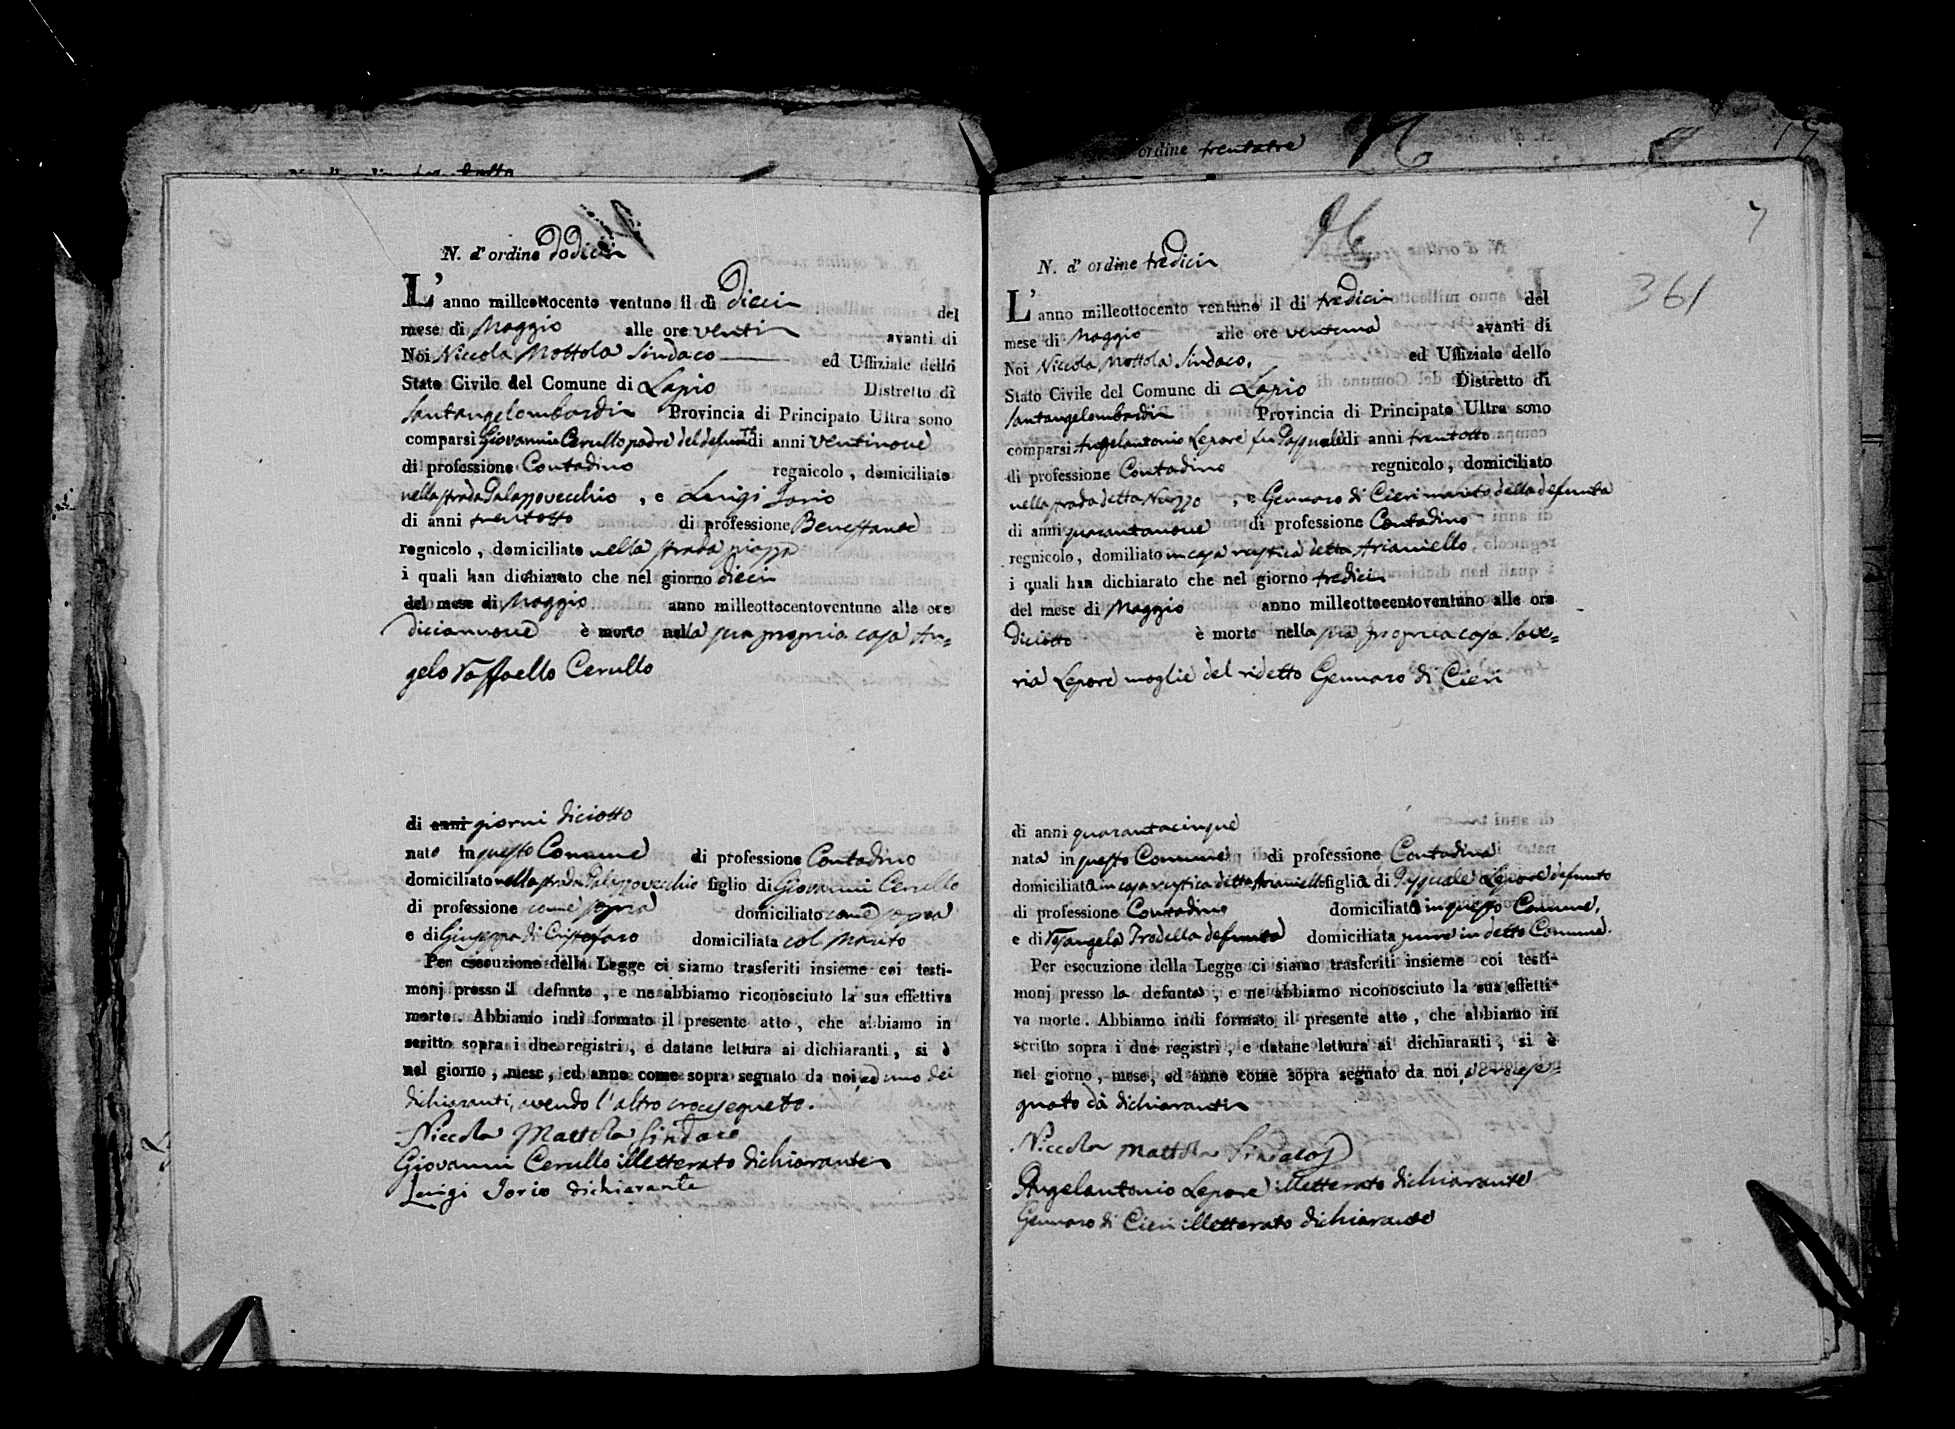 ordine trentatre
N. d'ordine Dodicin
L'anno milleottocento ventuno il dì Diecin del
mese di Maggio alle ore ventin avanti di
Noi Niccola Mottola Sindaco ed Uffiziale dello
Stato Civile del Comune di Lapio Distretto di
Santangelombardin Provincia di Principato Ultra sono
comparsi Giovanni Cerullo padre del defunto di anni ventinove
di professione Contadino regnicolo, domiciliato
nella strada Palazzovecchio, e Luigi Iorio
di anni trentotto di professione Benestante
regnicolo, domiciliato nella strada piazza
i quali han dichiarato che nel giorno diecin
del mese di Maggio anno milleottocentoventuno alle ore
diciannove è morto nella sua propria casa An=
gelo Raffaello Cerullo
di anni giorni diciotto
nato in questo Comune di professione Contadino
domiciliato nella strada Palazzovecchio figlio di Giovanni Cerullo
di professione come sopra domiciliato come sopra
e di Giuseppa di Cristofaro domiciliata col marito
Per esecuzione della Legge ci siamo trasferiti insieme coi testi-
monj presso il defunto, e ne abbiamo riconosciuto la sua effettiva
morte. Abbiamo indi formato il presente atto, che abbiamo in
scritto sopra i due registri, e datane lettura ai dichiaranti, si è
nel giorno, mese, ed anno come sopra segnato da noi, ed uno dei
dichiaranti, avendo l'altro crocesegnato.
Niccola Mottola Sindaco
Giovanni Cerullo illetterato dichiaranten
Luigi Iorio dichiarante
7
361
N. d'ordine tredicin
L'anno milleottocento ventuno il dì tredicin del
mese di Maggio alle ore ventuna avanti di
Noi Niccola Mottola Sindaco. ed Uffiziale dello
Stato Civile del Comune di Lapio Distretto di
Santangelombardin Provincia di Principato Ultra sono
comparsi Angelantonio Lepore fu Pasquale di anni trentotto
di professione Contadino regnicolo, domiciliato
nella strada detta Nuzzo, e Gennaro di Cieri marito della defunta
di anni quarantanove di professione Contadino
regnicolo, domiliato in casa rustica detta Arianiello
i quali han dichiarato che nel giorno tredicin
del mese di Maggio anno milleottocentoventuno alle ore
diciotto è morto nella sua propria casa Save=
ria Lepore moglie del ridetto Gennaro di Cieri
di anni quarantacinque
nata in questo Comune di professione Contadina
domiciliata in casa rustica detta Arianiello figlia di Pasquale Lepore defunto
di professione Contadino domiciliato in questo Comune,
e di Arcangela Trodella defunta domiciliata pure in detto Comune.
Per esecuzione della Legge ci siamo trasferiti insieme coi testi-
monj presso la defunta, e ne abbiamo riconosciuto la sua effetti-
va morte. Abbiamo indi formato il presente atto, che abbiamo in
scritto sopra i due registri, e datane lettura ai dichiaranti, si è
nel giorno, mese, ed anno come sopra segnato da noi, e crocese=
gnato da dichiarantin
Niccola Mottola Sindaco
Angelantonio Lepore illetterato dichiarante
Gennaro di Cieri illetterato dichiarante